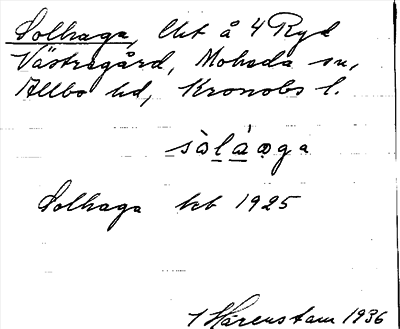 Solhaga, lht å 4 Ryd
Västregård, Moheda sn,
Allbo hd, Kronobs l.
sòlàaga
Solhaga beb 1925
Härenstam 1936